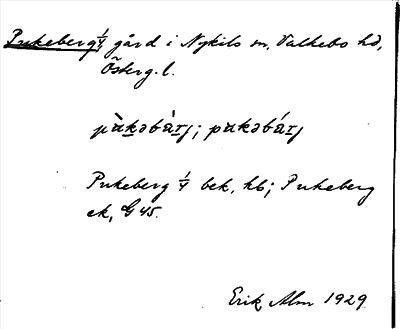 Pukeberg 1/4 gård i Nykils sn, Valkebo hd,
Österg. l.
pùkəbàrj; pukəbárj
Pukeberg 1/4 bek. hb; Pukeberg
ek, G 45.
Erik Alm 1929